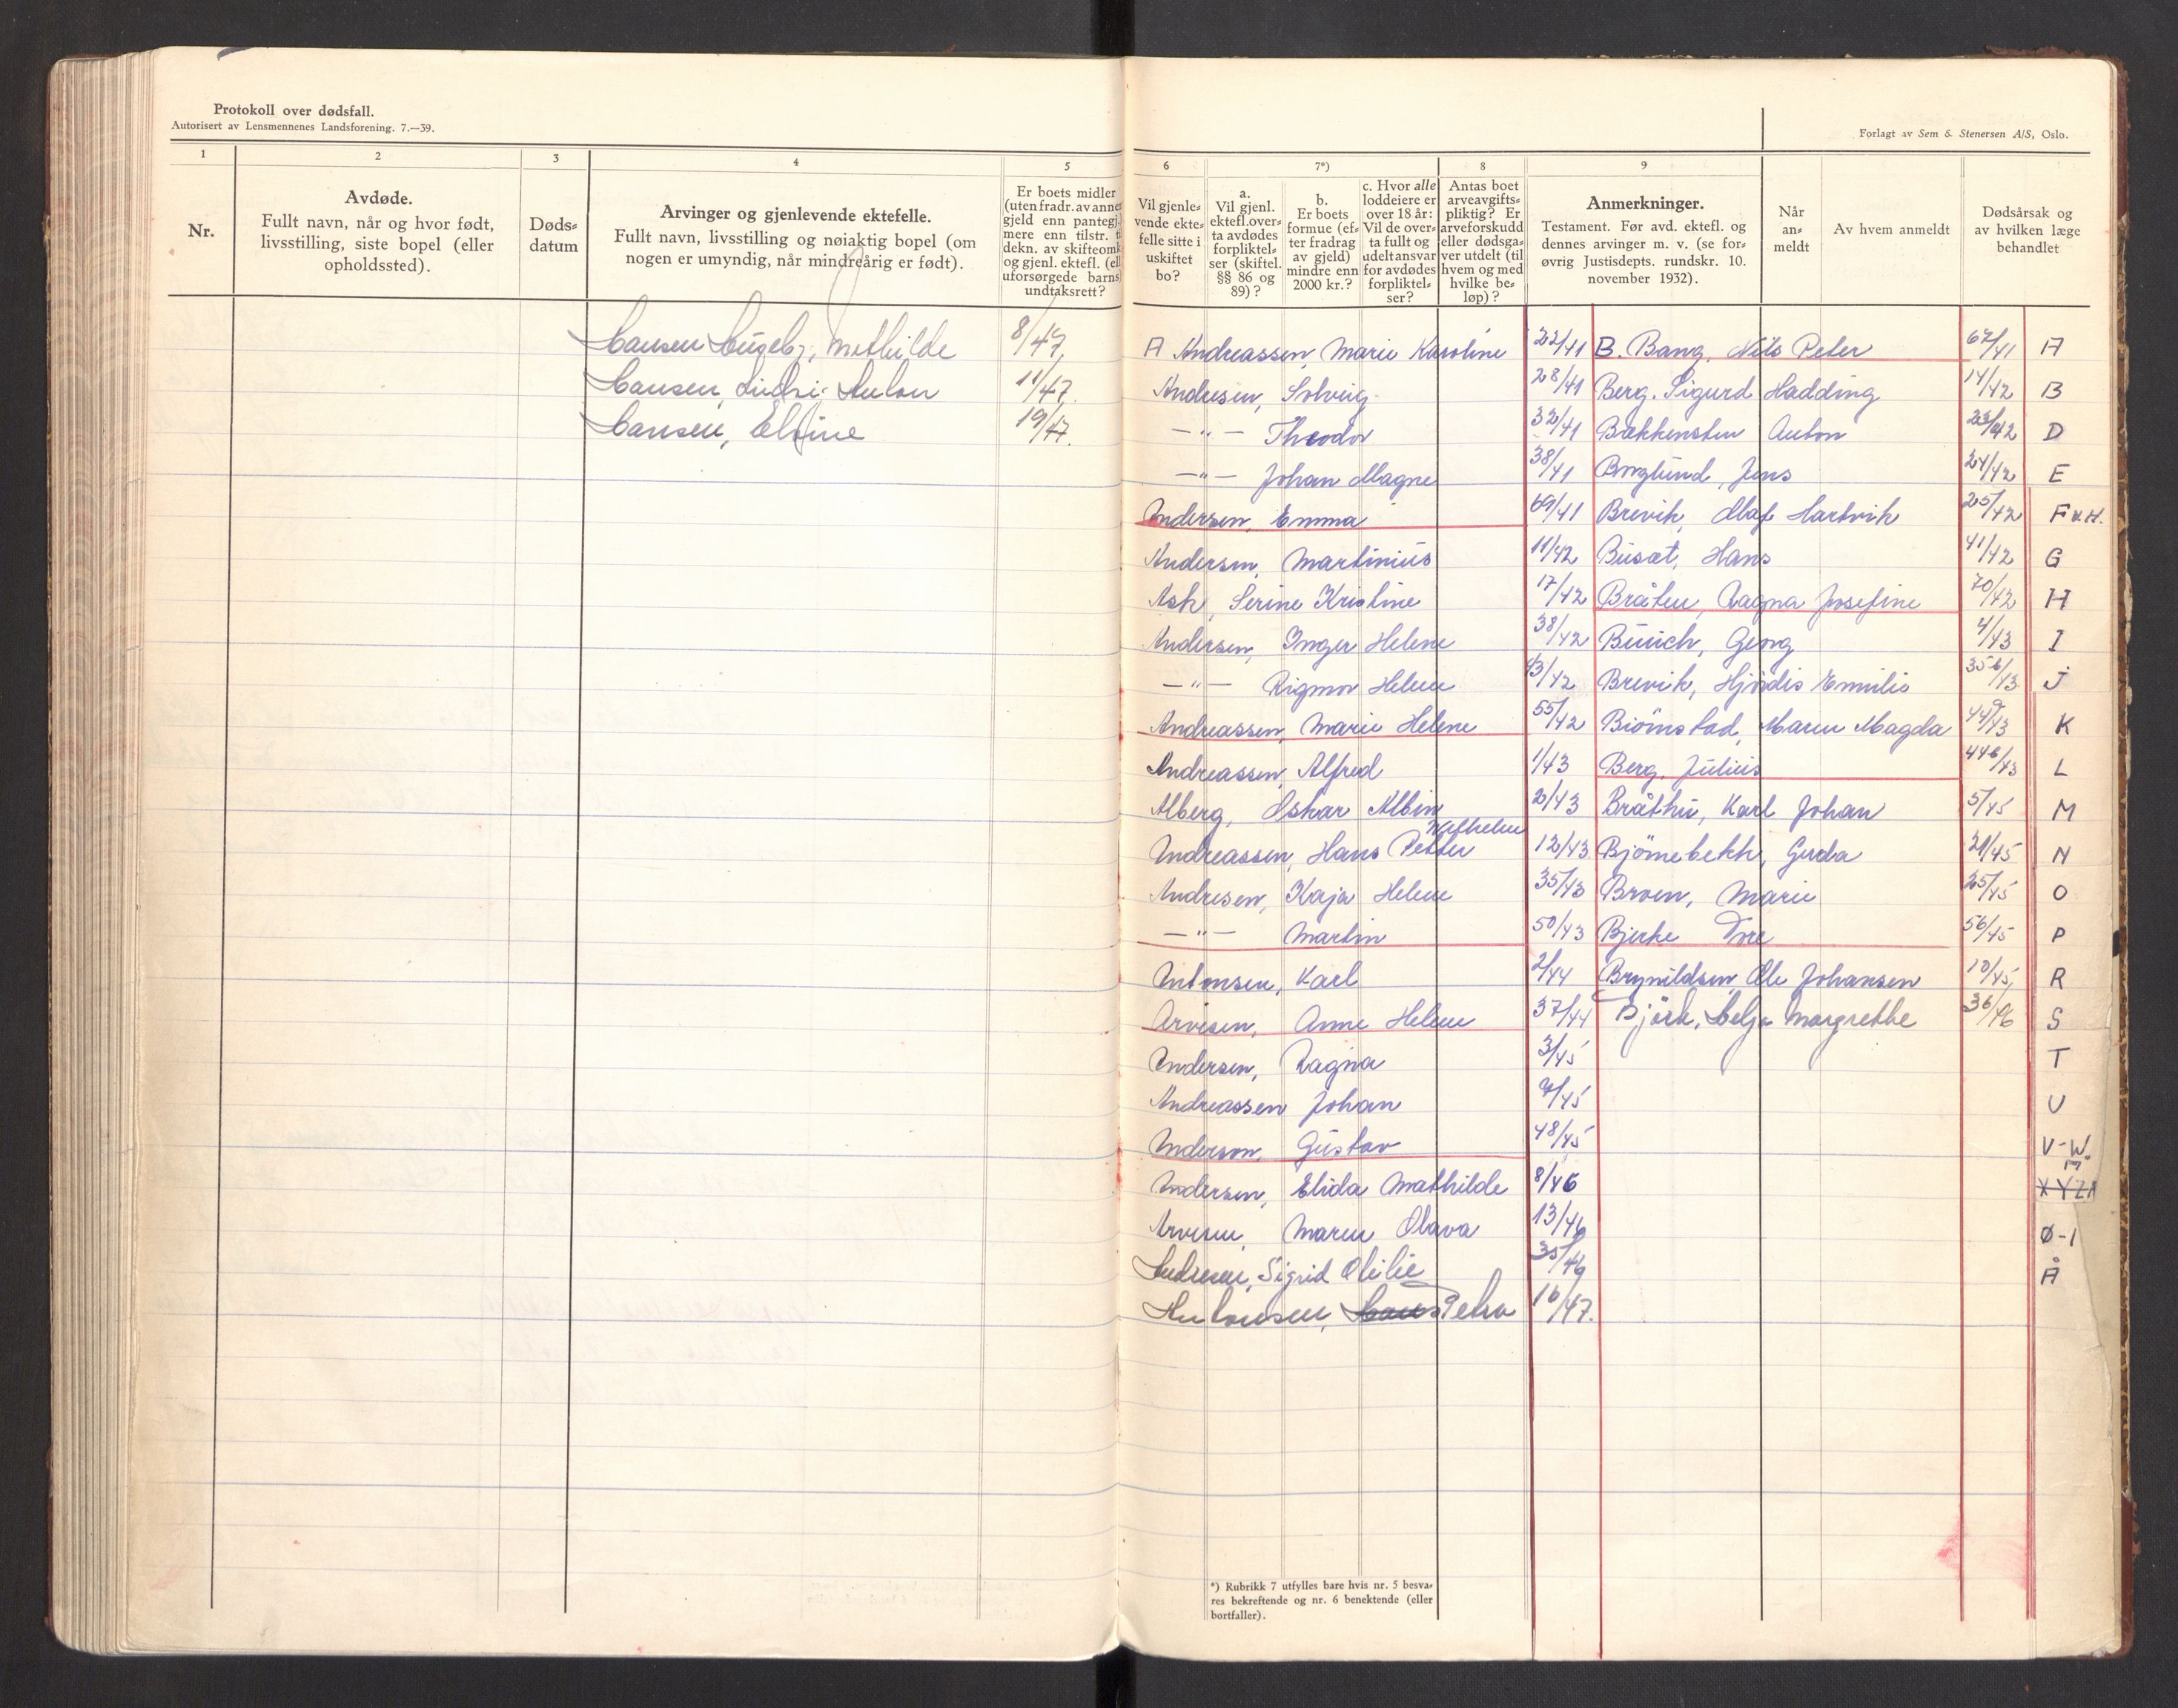 Protokoll over dødsfall.
Autorisert av Lensmennenes Landsforening. 7.—39.
1
2
3
4
5
Nr.
Avdøde.
Fullt navn, når og hvor født,
livsstilling, siste bopel (eller
opholdssted).
Døds-
datum
Arvinger og gjenlevende ektefelle.
Fullt navn, livsstilling og nøiaktig bopel (om
nogen er umyndig, når mindreårig er født).
Er boets midler
(uten fradr. av annen
gjeld enn pantegj.
mere enn tilstr. t
dekn. av skifteomk
og gjenl. ektef. (ell
uforsørgede barns)
undtaksrett?
Hansen Ingeb, Mathilde 8/47.
Hansen, Anton 11/47.
Hansen, Elfine 19/47.
Forlagt av Sem & Stenersen A/S, Oslo.
6
7*)
8
9
Vil gjenle-
vende ekte-
felle sitte i
uskiftet
bo?
a.
Vil gjenl.
ektefl. over-
ta avdødes
forpliktel-
ser (skiftel.
§§ 86 og
89)?
b.
Er boets
formue (ef-
ter fradrag
av gjeld)
mindre enn
2000 kr.?
c. Hvor alle
loddeiere er
over 18 år:
Vil de over-
ta fullt og
udelt ansvar
for avdødes
forpliktel-
ser?
Antas boet
arveavgifts-
pliktig? Er
arveforskudd
eller dødsga-
ver utdelt (til
hvem og med
hvilke be-
løp)?
Anmerkninger.
Testament. Før avd. ektefl. og
dennes arvinger m. v. (se for-
øvrig Justisdepts. rundskr. 10.
november 1932).
Når
an-
meldt
Av hvem anmeldt
Dødsårsak og
av hvilken læge
behandlet
A Andreassen, Marie Karoline 22/41 B. Bang, Nils Peter 67/41 A
Andresen, Solveig 28/41 Berg. Sigurd Hadding 14/42 B
—"— Theodor 32/41 Bakkensten Anton 23/42 D
—"— Johan Magne 38/41 Berglund, Jens 24/42 E
Andersen, Emma 69/41 Brevik, Olaf Hartvik 25/42 F
Andersen, Martinius 11/42 Busæt, Hans 41/42 G
Ask, Serine Kristine 17/42 Bråten, Ragna Josefine 70/42 H
Andersen, Inger Helene 38/42 Buuch, Georg 4/43 I
—"— Rigmor Helene 43/42 Brevik, Hjørdis Emilie 356/43 J
Andreassen, Marie Helene 55/42 Bjørnstad, Maren Magda 449/43 K
Andreassen, Alfred 1/43 Berg, Julius 446/43 L
Alberg, Oskar Albin 2/43 Bråthu, Karl Johan 5/45 M
Andreassen, Hans Petter Wilhelm 12/43 Bjørnebekk, Gerda 21/45 N
Andresen, Kaja Helene 35/43 Broen, Marie 25/45 O
—"— Martin 50/43 Bjerke Tore 56/45 P
Antonsen, Karl 2/44 Brynildsen, Ole Johansen 10/45 R
Arvesen, Anne Helene 37/44 Björk, Helga Margrethe 36/46 S
Andersen, Ragna 3/45 T
Andreassen Johan 7/45 U
Anderson, Gustav 48/45 V-W.
Andersen, Elida Mathilde 8/46 XYZÆ
Arvesen, Maren Olava 13/46 Ø-1
Andresen, Sigrid Otilie 35/46 Å
Antonsen, Hans Petra 16/47.
*) Rubrikk 7 utfylles bare hvis nr. 5 besva-
res bekreftende og nr. 6 benektende (eller
bortfaller).